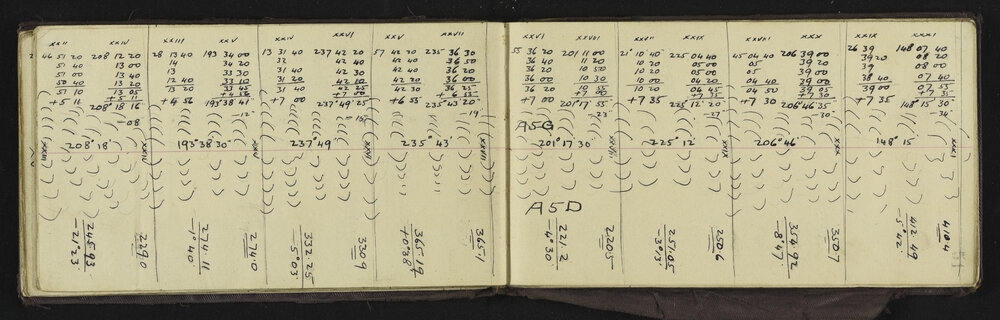 XXII XXIV XXIII XXV XXIV XXVI XXV XXVII
46 51 20 208 12 20 28 13 40 193 34 00 13 31 40 237 42 20 57 42 20 235 36 30
51 40 13 00 14 34 20 32 42 40 42 40 36 50
51 00 13 40 13 33 30 31 40 42 30 42 40 36 20
50 40 13 20 12 40 33 10 31 20 42 10 42 20 36 00
51 10 13 05 13 20 33 45 31 40 42 25 42 30 36 25
+5 11 +5 11 +4 56 +4 56 +7 00 +7 00 +6 55 +6 55
208° 18 16 193° 38' 41" 237° 49' 25" 235° 43' 20"
-08 -12 -15 -19
208° 18' 193° 38' 30" 237° 49' 235° 43'
XXIII XXIV XXV XXVI XXVII
245.93 2290 274.11 2740 332.25 3309 365.19 365.1
-21°23' -1°40' -5°03' +0°38'
XXVI XXVIII XXVII XXIX XXVIII XXX XXIX XXXI
55 36 20 201 11 00 21° 10' 40" 225 04 40 45 04 40 206 39 00 26 39 148 07 40
36 40 11 20 10 20 05 00 05 39 20 39 20 08 20
36 20 10 50 10 20 05 00 05 39 00 39 08 00
36 00 10 30 10 00 04 20 04 40 39 00 38 40 07 40
36 20 10 55 10 20 04 45 04 50 39 05 39 00 07 55
+7 00 +7 00 +7 35 +7 35 +7 30 +7 30 +7 35 +7 35
201° 17' 55" 225° 12' 20" 206° 46' 35" 148° 15' 30"
-23 -27 -30 -34
A5G
201° 17' 30" 225° 12' 206° 46' 148° 15'
XXVIII XXIX XXX XXXI
A5D
221.2 2205 251.05 2506 354.92 3507 412.49 4104
-4°30' -3°03' -8°47' -5°42'